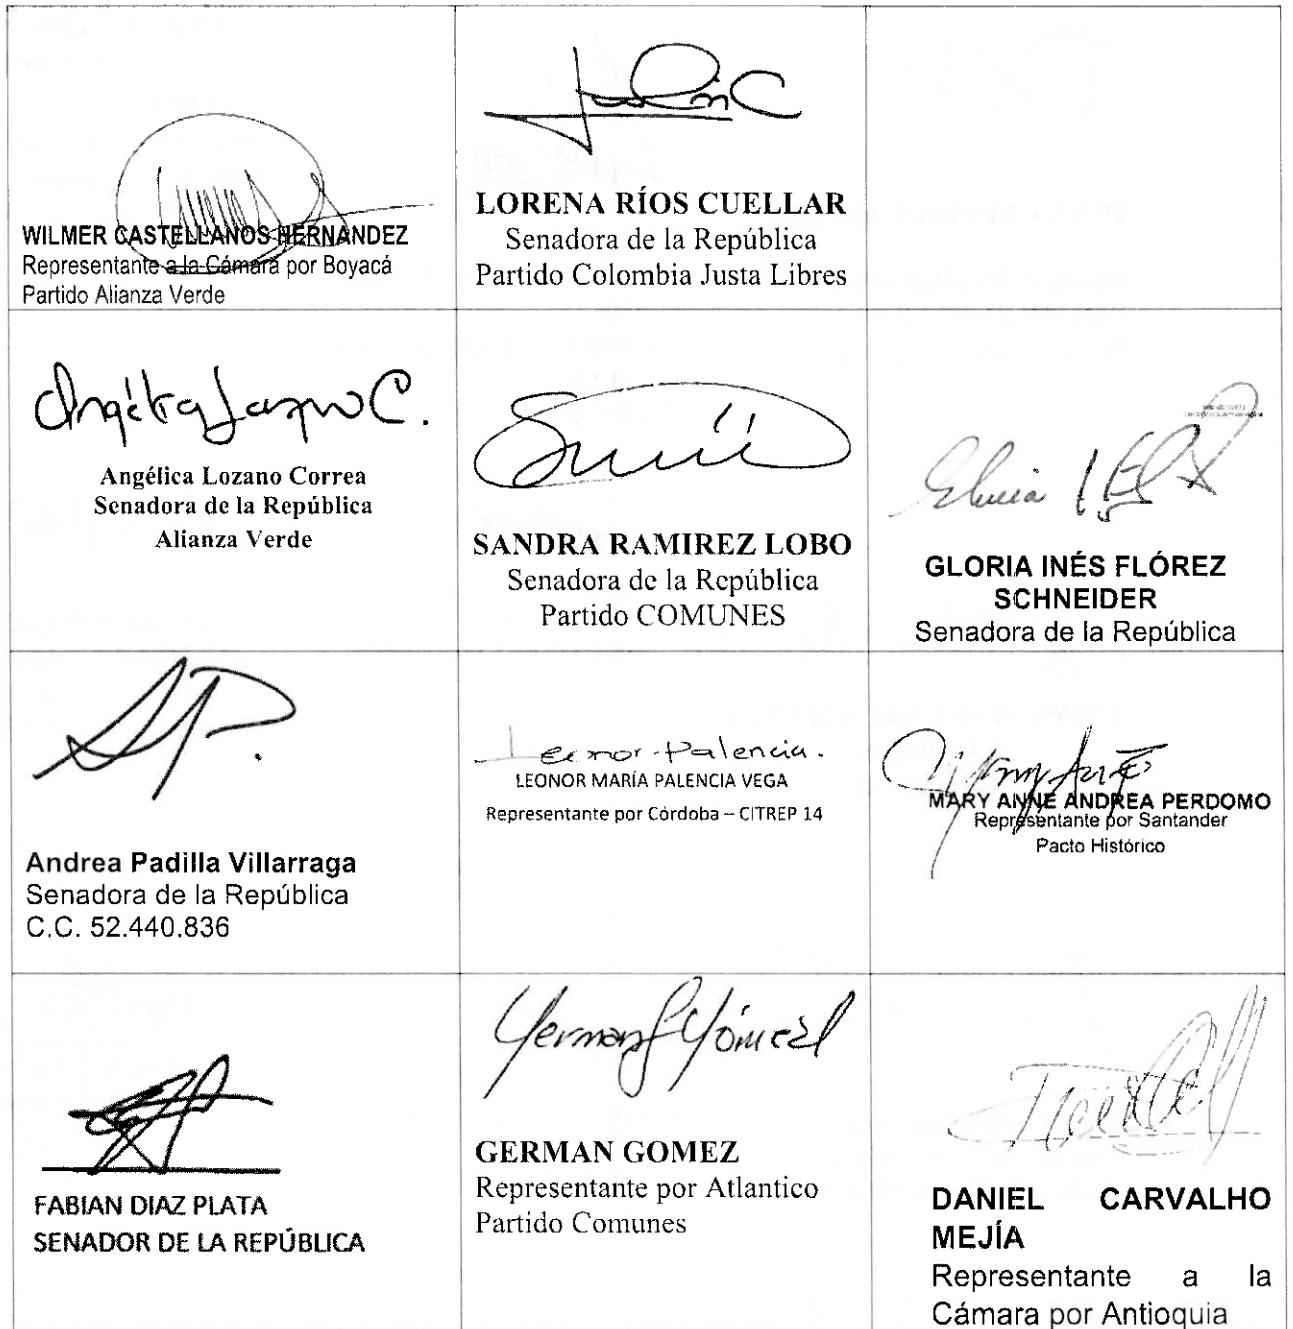 WILMER CASTELLANOS HERNANDEZ
Representante a la Cámara por Boyacá
Partido Alianza Verde
LORENA RÍOS CUELLAR
Senadora de la República
Partido Colombia Justa Libres
Angélica Lozano C.
Angélica Lozano Correa
Senadora de la República
Alianza Verde
SANDRA RAMIREZ LOBO
Senadora de la República
Partido COMUNES
GLORIA INÉS FLÓREZ
SCHNEIDER
Senadora de la República
Andrea Padilla Villarraga
Senadora de la República
C.C. 52.440.836
Leonor Palencia.
LEONOR MARÍA PALENCIA VEGA
Representante por Córdoba – CITREP 14
MARY ANNE ANDREA PERDOMO
Representante por Santander
Pacto Histórico
FABIAN DIAZ PLATA
SENADOR DE LA REPÚBLICA
German Gómez
GERMAN GOMEZ
Representante por Atlantico
Partido Comunes
DANIEL CARVALHO
MEJÍA
Representante a la
Cámara por Antioquia